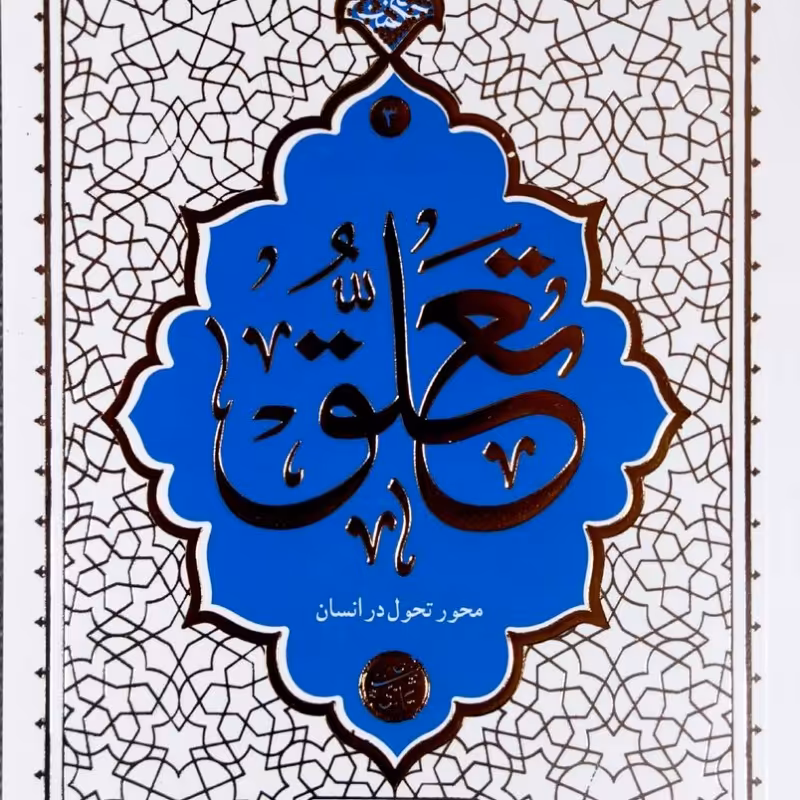 ۳
تعلّق
محور تحول در انسان